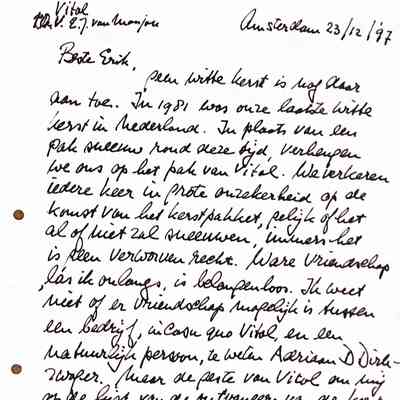 Vital
V. E. J. van Manjou
Amsterdam 23/12/'97
Beste Erik,
geen witte kerst is nog daar
aan toe. In 1981 was onze laatste witte
kerst in Nederland. In plaats van een
pak sneeuw rond deze tijd, verheugen
we ons op het pak van Vital. We verkeren
iedere keer in grote onzekerheid op de
komst van het kerstpakket, gelijk of het
al of niet zal sneeuwen, immers het
is geen verworven recht. Ware vriendschap
las ik onlangs, is belangenloos. Ik weet
niet of er vriendschap mogelijk is tussen
een bedrijf, in casu quo Vital, en een
natuurlijk persoon, te weten Adriaan D. Dirk-
zwager. Maar de geste van Vital om mij
op de lijst van de ontvangers van de